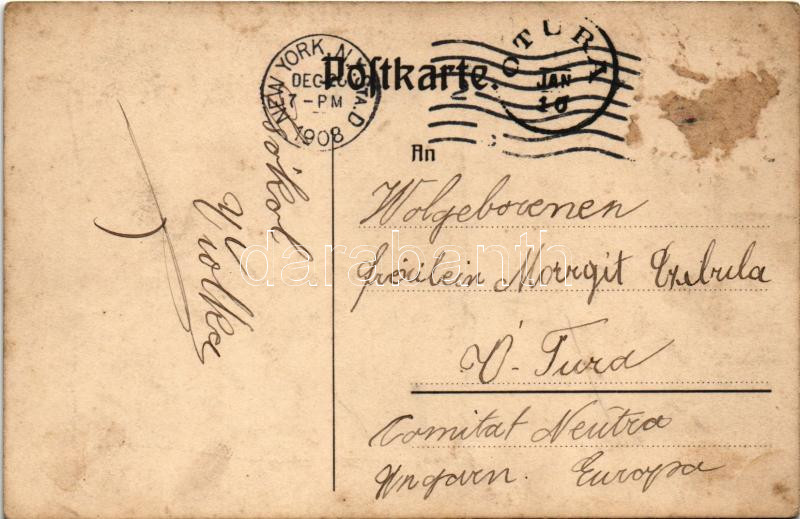 NEW YORK, N.Y. STA. D
DEC 26
7-PM
1908
Postkarte.
OTURA
JAN
10
An
Wolgeborenen
Fräulein Morrgit Czebula
Ó-Tura
Comitat Neutra
Ungarn. Europa
csókol
Yolka
darabanth